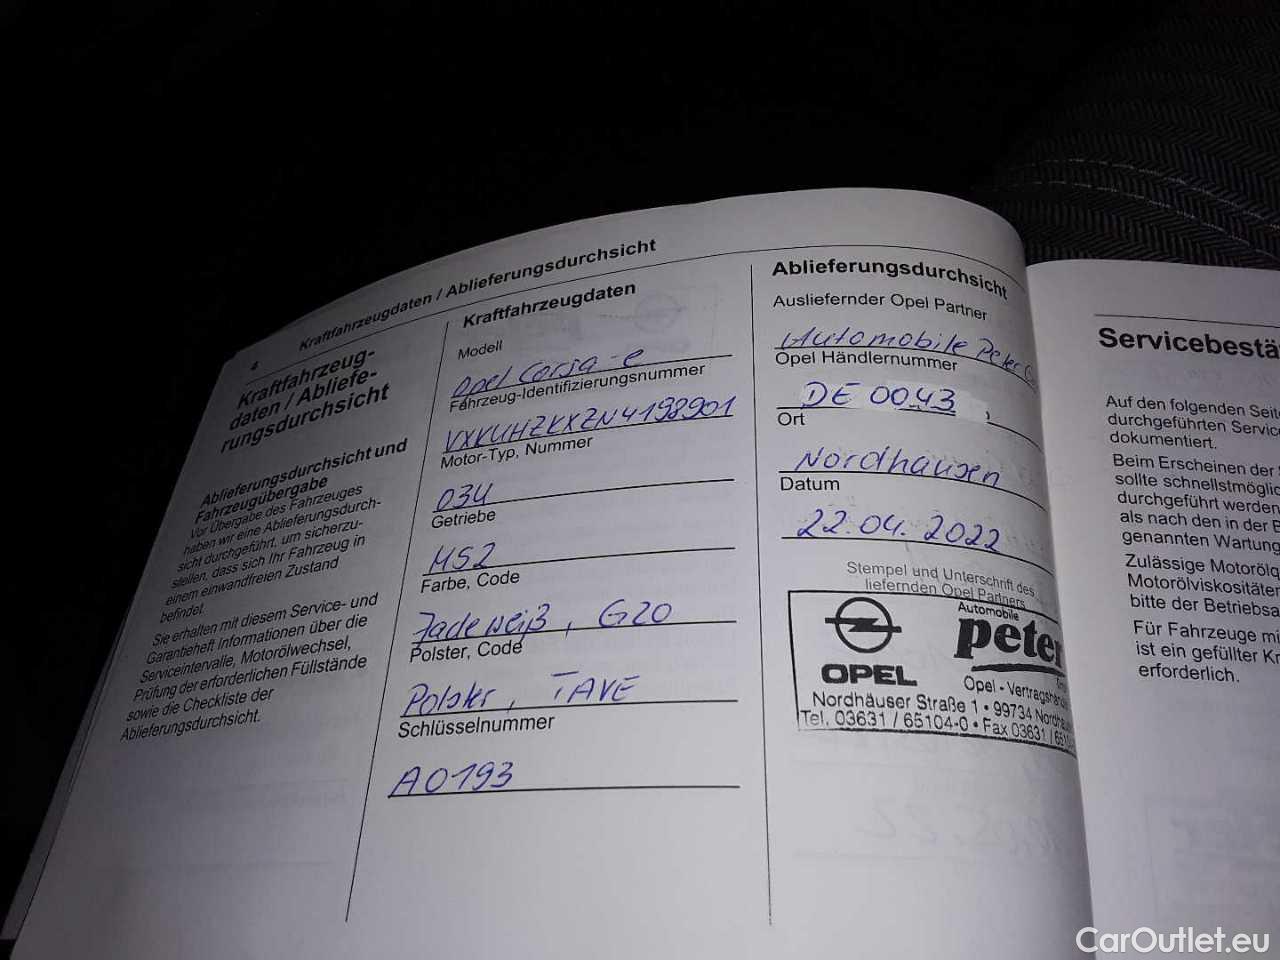 4
Kraftfahrzeugdaten / Ablieferungsdurchsicht
Kraftfahrzeug-
daten / Abliefe-
rungsdurchsicht
Ablieferungsdurchsicht und
Fahrzeugübergabe
Vor Übergabe des Fahrzeuges
haben wir eine Ablieferungsdurch-
sicht durchgeführt, um sicherzu-
stellen, dass sich Ihr Fahrzeug in
einem einwandfreien Zustand
befindet.
Sie erhalten mit diesem Service- und
Garantieheft Informationen über die
Serviceintervalle, Motorölwechsel,
Prüfung der erforderlichen Füllstände
sowie die Checkliste der
Ablieferungsdurchsicht.
Kraftfahrzeugdaten
Modell
Opel Corsa-e
Fahrzeug-Identifizierungsnummer
VXKUHZKXZN4198901
Motor-Typ, Nummer
03U
Getriebe
MS2
Farbe, Code
Jadeweiß, G20
Polster, Code
Polster, TAVE
Schlüsselnummer
A0193
Ablieferungsdurchsicht
Ausliefernder Opel Partner
Automobile Peter
Opel Händlernummer
DE 0043
Ort
Nordhausen
Datum
22.04.2022
Stempel und Unterschrift des
liefernden Opel Partners
Automobile
peter
OPEL
Opel-Vertragshändl
Nordhäuser Straße 1 • 99734 Nordhaus
Tel. 03631 / 65104-0 • Fax 03631 / 65
Servicebestä
Auf den folgenden Seite
durchgeführten Service
dokumentiert.
Beim Erscheinen der
sollte schnellstmöglic
durchgeführt werden
als nach den in der B
genannten Wartung
Zulässige Motorölq
Motorölviskositäten
bitte der Betriebsa
Für Fahrzeuge mi
ist ein gefüllter Kr
erforderlich.
CarOutlet.eu